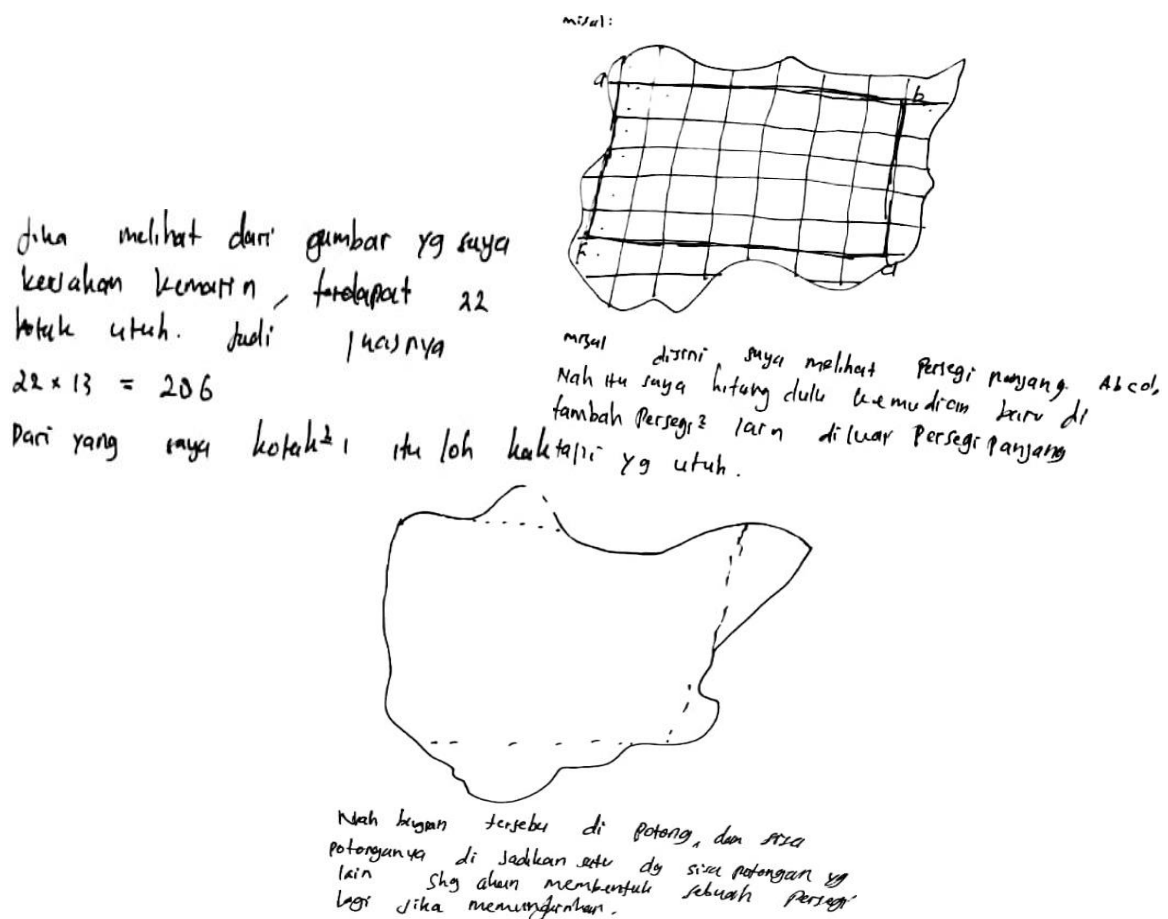 misal:
a
b
d
Jika melihat dari gambar yg saya
kerjakan kemarin, terdapat 22
kotak utuh. Jadi luasnya
22 x 13 = 286
Dari yang saya kotak², itu loh kak tapi yg utuh.
misal disini, saya melihat persegi panjang Abcd,
Nah itu saya hitung dulu kemudian baru di
tambah Persegi² lain diluar Persegi Panjang
Nah bagian tersebu di potong, dan sisa
potonganya di jadikan satu dg sisa potongan yg
lain shg akan membentuk sebuah persegi
lagi jika memungkinkan.